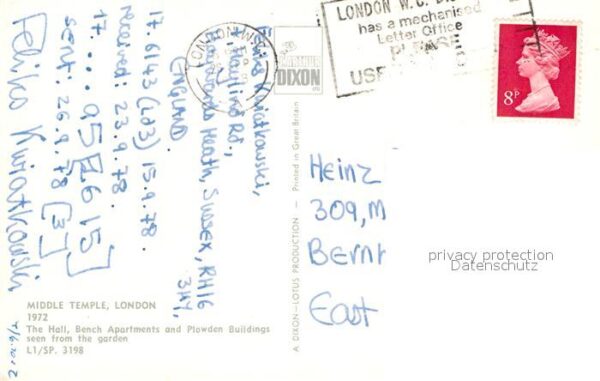 Feliks Kwiatkowski,
7 Hayling Rd.,
Heath, Sussex, RH16
3HY,
ENGLAND.
17.6143 (Ld3) 15.9.78.
received: 23.9.78.
17... a5 [2615]
sent: 26.9.78 [3]
Feliks Kwiatkowski
ARTHUR
DIXON
LONDON W.C.
LONDON W.C. DIS
has a mechanised
Letter Office
PLEASE
USE
8P
Heinz
309, M
Bernt
East
privacy protection
Datenschutz
A DIXON–LOTUS PRODUCTION – Printed in Great Britain
MIDDLE TEMPLE, LONDON
1972
The Hall, Bench Apartments and Plowden Buildings
seen from the garden
L1/SP. 3198